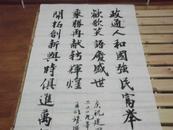 政通人和國強民富舉
歡歌笑語慶盛世
乘勝再献新輝煌
開拓創新與時俱進萬